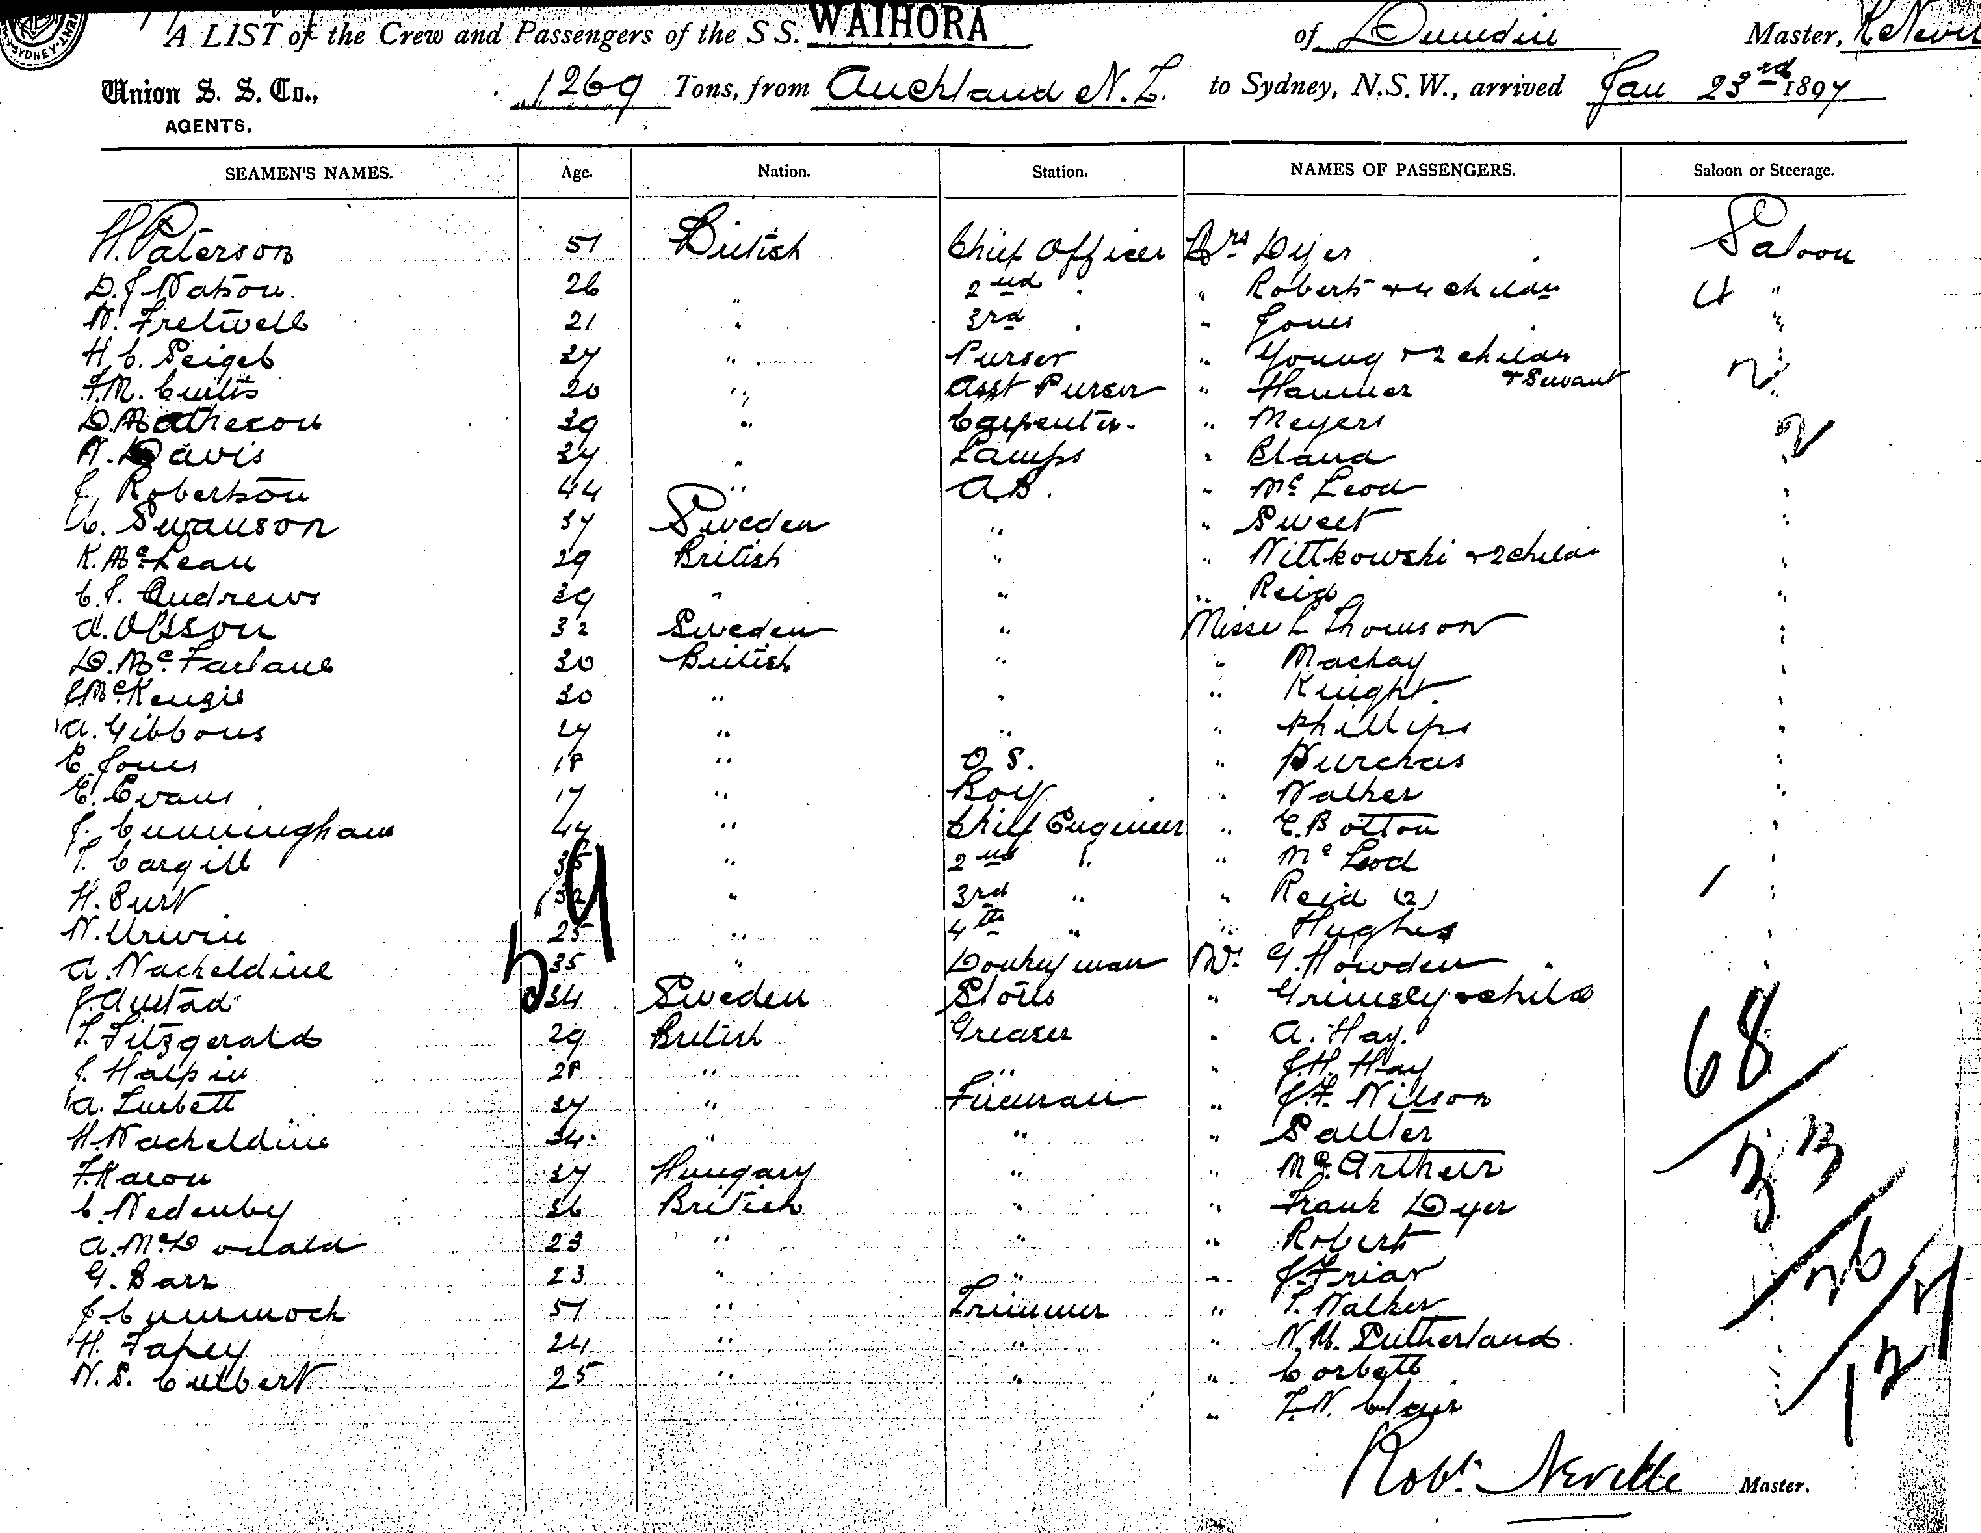 A LIST of the Crew and Passengers of the S S. WAIHORA of Dunedin Master, R Nevil
Union S. S. Co., 1269 Tons, from Auckland N.Z. to Sydney, N.S.W., arrived Jan 23rd 1897
AGENTS.
SEAMEN'S NAMES. Age. Nation. Station. NAMES OF PASSENGERS. Saloon or Steerage.
H. Paterson 51 British Chief Officer Mrs Dyer Saloon
D. J Watson 26 " 2nd " " Roberts + 4 childn 4 "
W. Fretwell 21 " 3rd " " Jones "
H. C. 27 " Purser " Young + 2 childn 2 "
F. M. Curtis 20 " Asst Purser " Hammer + Servant
D. Matheson 39 " Carpenter " Meyers 2
W. Davis 27 " Lamps " Bland "
J. Robertson 44 " A.B. " Mc Leod "
C. Swanson 37 Sweden " " Sweet "
K. McLean 29 British " " Wittkowski + 2 childn "
C. S. Andrews 39 " " " Reid "
A. Olsson 32 Sweden " Misses L Thomson "
D. McFarlane 30 British " " Mackay "
J McKenzie 30 " " " Knight "
A. Gibbons 27 " " " Phillips "
E. Jones 18 " O S. " Purchas "
E. Evans 17 " Boy " Walker "
J. Cunningham 47 " Chief Engineer " E. Bolton "
T. Cargill 35 " 2nd " " Mc Leod "
H. Burt 32 " 3rd " " Reid (2) 1 "
W. Urwin 25 " 4th " " Hughes "
A. Wacheldine 35 " Donkeyman Mr G. Howden "
J. Austad 34 Sweden Stores " Grimsley + child
T. Fitzgerald 29 British Greaser " A. Hay. 68
J. Halpin 28 " " " J. H. Hay
A. Turbett 27 " Fireman " J. F. Wilson
H. Wacheldine 34 " " " Saulter 33
F. Karon 37 Hungary " " McArthur
C. Wedenby 36 British " " Frank Dyer
A. McDonald 23 " " " Roberts 26
G. Barr 23 " " " J. Friar
J. Cummock 51 " Trimmer " T. Walker
H. Fahey 24 " " " W. M. Sutherland 127
W. S. Culbert 25 " " " Corbett
" T. W. Clair
59
Robt. Neville Master.